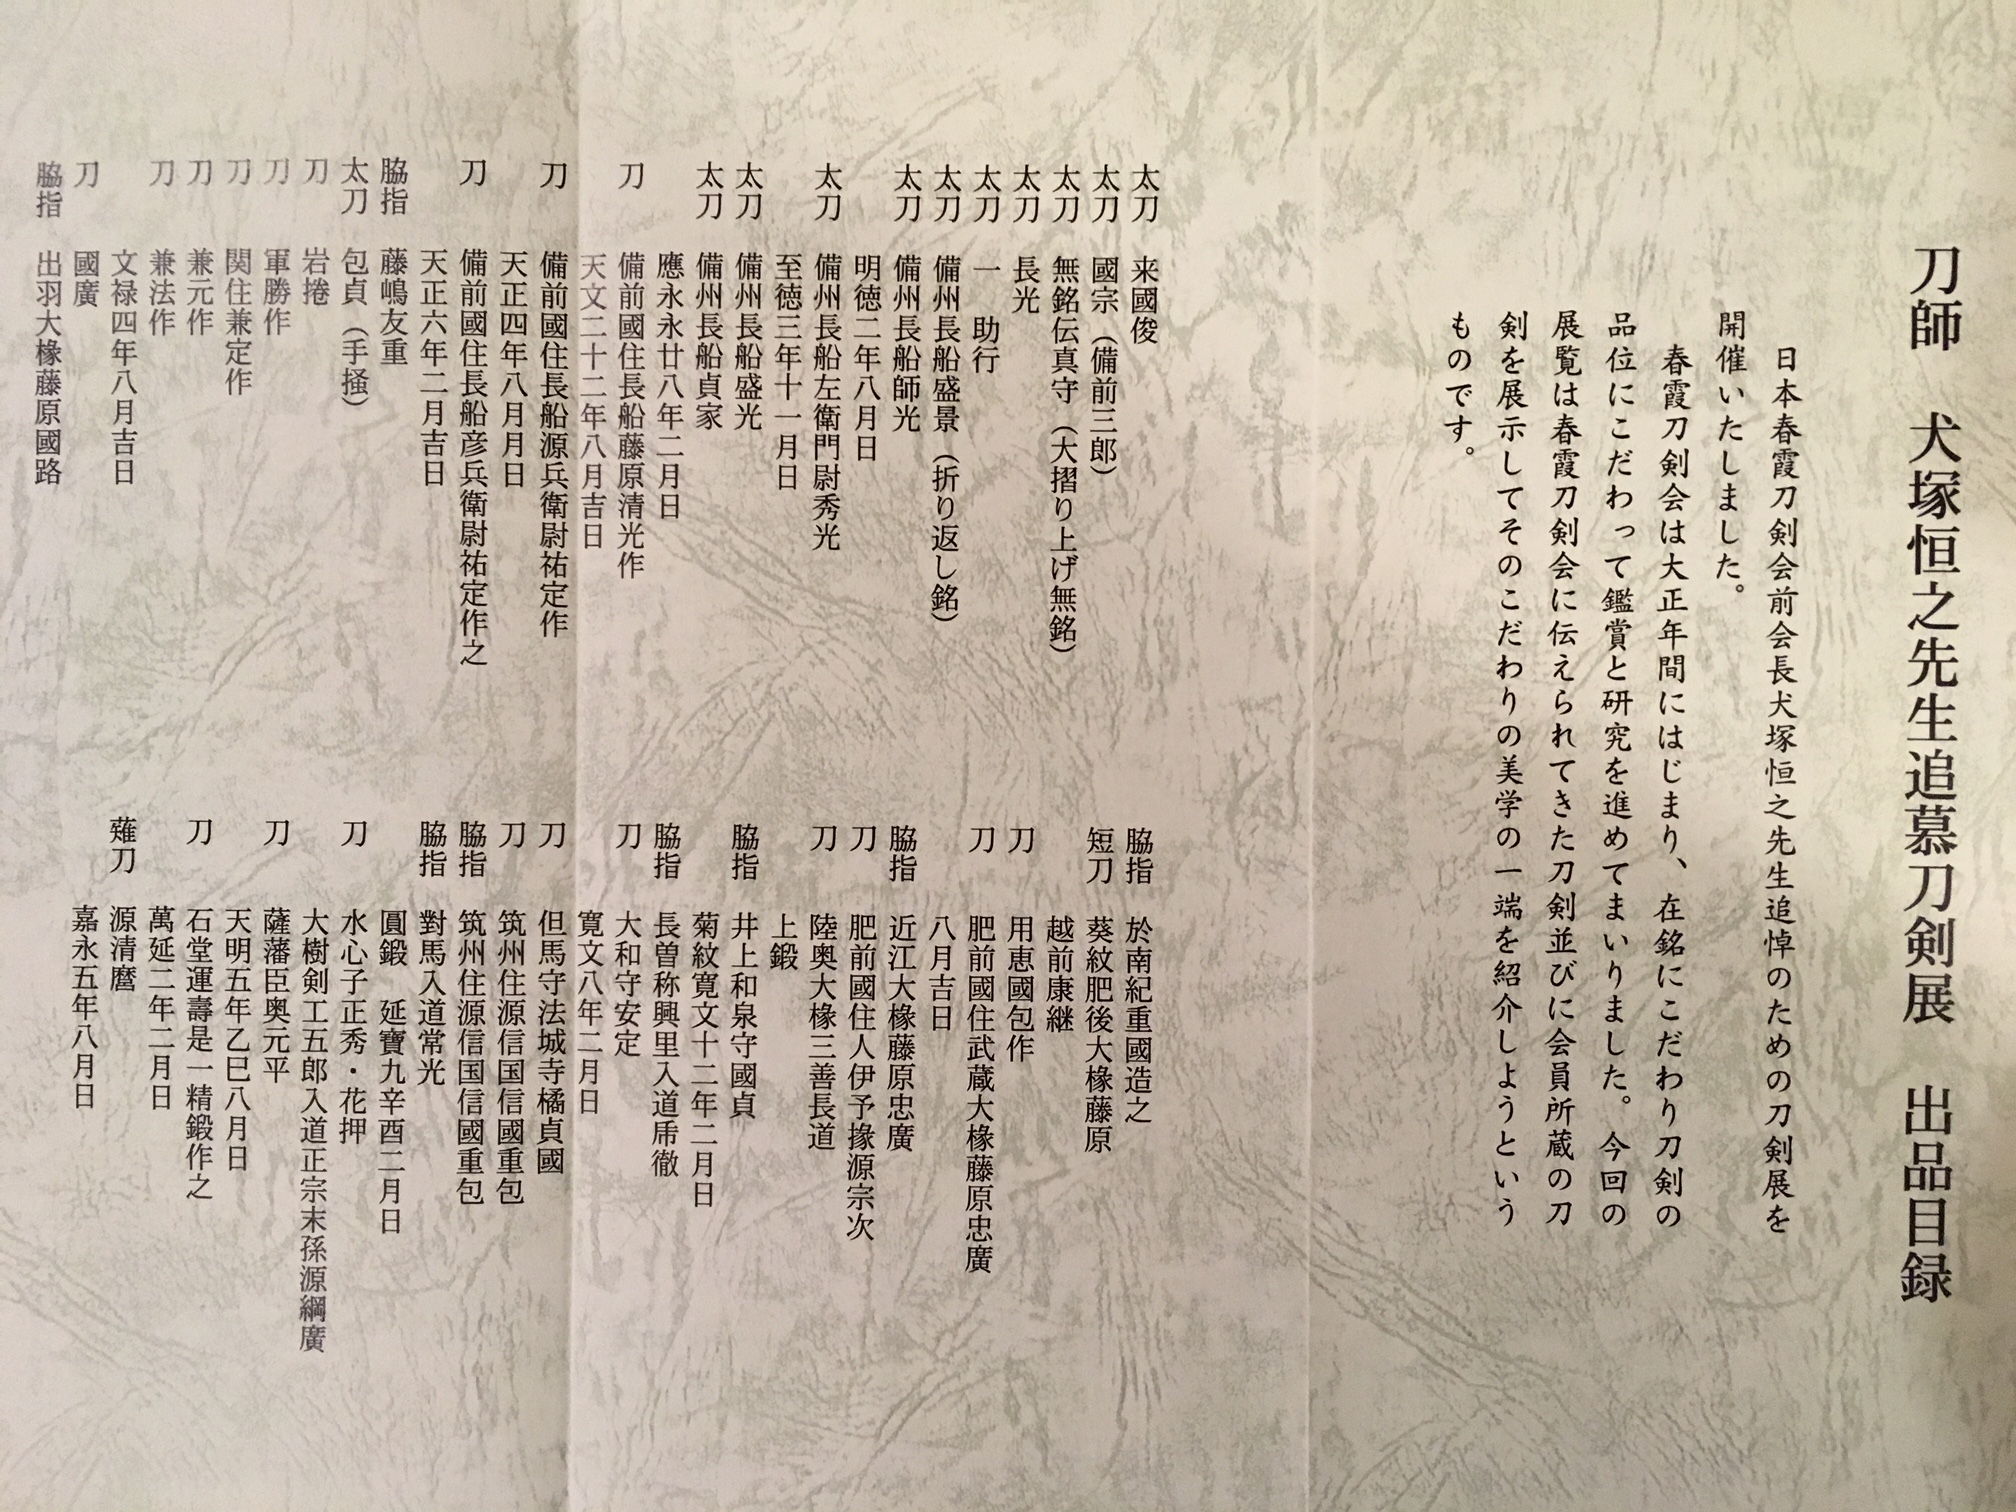 刀師　犬塚恒之先生追慕刀剣展　出品目録
日本春霞刀剣会前会長犬塚恒之先生追悼のための刀剣展を
開催いたしました。
春霞刀剣会は大正年間にはじまり、在銘にこだわり刀剣の
品位にこだわって鑑賞と研究を進めてまいりました。今回の
展覧は春霞刀剣会に伝えられてきた刀剣並びに会員所蔵の刀
剣を展示してそのこだわりの美学の一端を紹介しようという
ものです。
太刀　来國俊
太刀　國宗（備前三郎）
太刀　無銘伝真守（大摺り上げ無銘）
太刀　長光
太刀　一　助行
太刀　備州長船盛景（折り返し銘）
太刀　備州長船師光
明徳二年八月日
太刀　備州長船左衛門尉秀光
至徳三年十一月日
太刀　備州長船盛光
太刀　備州長船貞家
應永永廿八年二月日
刀　備前國住長船藤原清光作
天文二十二年八月吉日
刀　備前國住長船源兵衛尉祐定作
天正四年八月月日
刀　備前國住長船彦兵衛尉祐定作之
天正六年二月吉日
脇指　藤嶋友重
太刀　包貞（手掻）
刀　岩捲
刀　軍勝作
刀　関住兼定作
刀　兼元作
刀　兼法作
文禄四年八月吉日
刀　國廣
脇指　出羽大椽藤原國路
脇指　於南紀重國造之
短刀　葵紋肥後大椽藤原
越前康継
刀　用恵國包作
刀　肥前國住武蔵大椽藤原忠廣
八月吉日
脇指　近江大椽藤原忠廣
刀　肥前國住人伊予掾源宗次
刀　陸奥大椽三善長道
上鍛
脇指　井上和泉守國貞
菊紋寛文十二年二月日
脇指　長曽称興里入道乕徹
刀　大和守安定
寛文八年二月日
刀　但馬守法城寺橘貞國
刀　筑州住源信国信國重包
脇指　筑州住源信国信國重包
脇指　對馬入道常光
圓鍛　延寶九辛酉二月日
刀　水心子正秀・花押
大樹剣工五郎入道正宗末孫源綱廣
刀　薩藩臣奥元平
天明五年乙巳八月日
刀　石堂運壽是一精鍛作之
萬延二年二月日
薙刀　源清麿
嘉永五年八月日